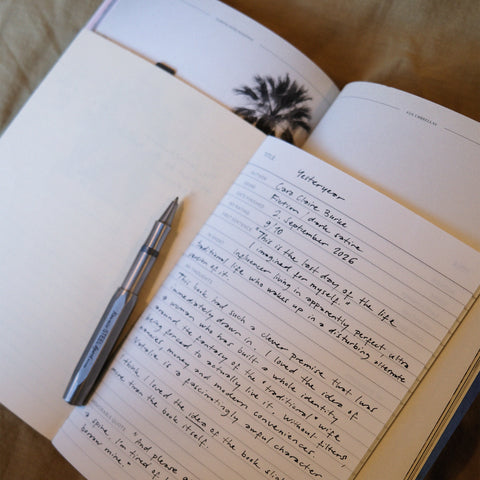 TITLE
Yesteryear
AUTHOR
Caro Claire Burke
GENRE
Fiction, dark satire
DATE FINISHED
2 September 2026
MY RATING
9/10
FIRST SENTENCE
"This is the last day of the life
I imagined for myself."
IN SHORT
Influencer living in apparently perfect, ultra
traditional life who wakes up in a disturbing alternate
version of it.
THOUGHTS
This book had such a clever premise that I was
immediately drawn in. I loved the idea of
a woman who was built a whole identity
around the fantasy of the "traditional" wife
being forced to actually live it. Without filters,
nannies, money and modern conveniences.
Natalie is a fascinatingly awful character
think I loved the idea of the book
more than the book itself.
MEMORABLE QUOTE
"And please
a spine. I'm tired of
borrow mine."